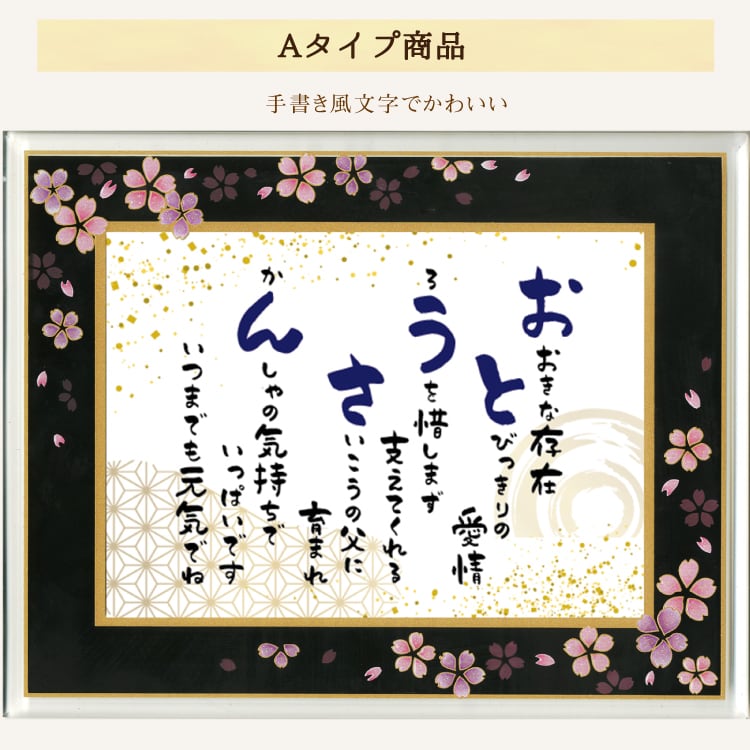 Aタイプ商品
手書き風文字でかわいい
おおきな存在
とびっきりの
愛情
ろうを惜しまず
支えてくれる
さいこうの父に
育まれ
かんしゃの気持ちで
いっぱいです
いつまでも元気でね